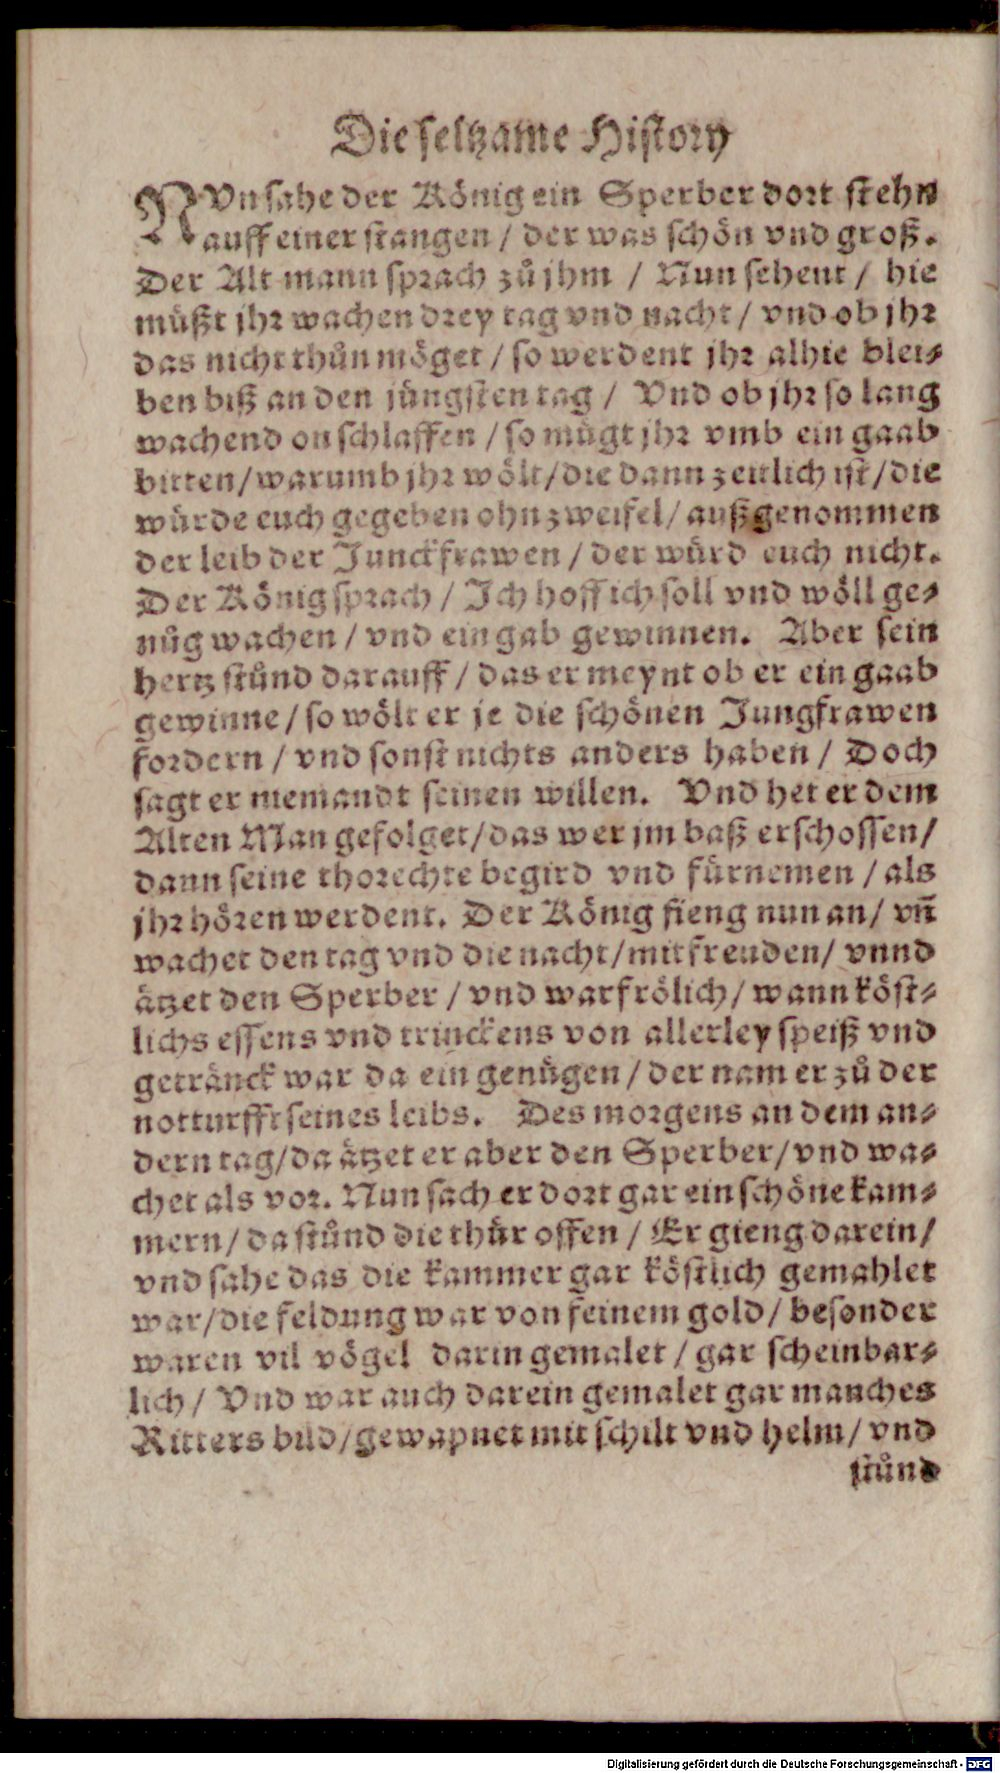 Die seltzame History
NVn sahe der König ein Sperber dort stehn
auff einer stangen / der was schön vnd groß.
Der Alt mann sprach zů jhm / Nun sehent / hie
müßt jhr wachen drey tag vnd nacht / vnd ob jhr
das nicht thůn möget / so werdent jhr alhie blei⸗
ben biß an den jüngsten tag / Vnd ob jhr so lang
wachend on schlaffen / so mügt jhr vmb ein gaab
bitten / warumb jhr wölt / die dann zeitlich ist / die
würde euch gegeben ohn zweifel / außgenommen
der leib der Junckfrawen / der würd euch nicht.
Der König sprach / Ich hoff ich soll vnd wöll ge⸗
nůg wachen / vnd ein gab gewinnen. Aber sein
hertz stůnd darauff / das er meynt ob er ein gaab
gewinne / so wölt er je die schönen Jungfrawen
fordern / vnd sonst nichts anders haben / Doch
sagt er niemandt seinen willen. Vnd het er dem
Alten Man gefolget / das wer jm baß erschossen /
dann seine thorechte begird vnd fürnemen / als
jhr hören werdent. Der König fieng nun an / vn̄
wachet den tag vnd die nacht / mit freuden / vnnd
ätzet den Sperber / vnd war frölich / wann köst⸗
lichs essens vnd trinckens von allerley speiß vnd
getränck war da ein genügen / der nam er zů der
notturfft seines leibs. Des morgens an dem an⸗
dern tag / da ätzet er aber den Sperber / vnd wa⸗
chet als vor. Nun sach er dort gar ein schöne kam⸗
mern / da stůnd die thür offen / Er gieng darein /
vnd sahe das die kammer gar köstlich gemahlet
war / die feldung war von feinem gold / besonder
waren vil vögel darin gemalet / gar scheinbar⸗
lich / Vnd war auch darein gemalet gar manches
Ritters bild / gewapnet mit schilt vnd helm / vnd
stůnd
Digitalisierung gefördert durch die Deutsche Forschungsgemeinschaft - DFG